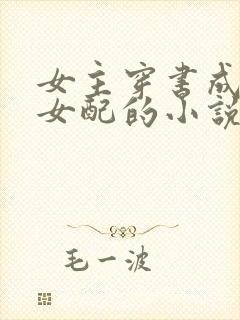 女主穿书成
女配的小説
毛一波